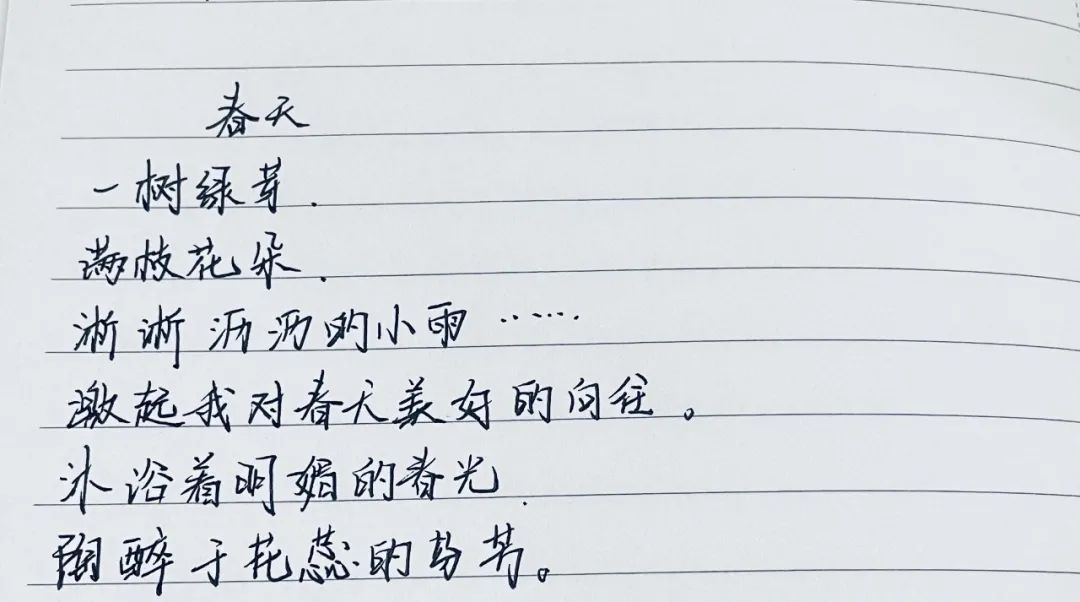 春天
一树绿芽.
满枝花朵.
淅淅沥沥的小雨……
激起我对春天美好的向往。
沐浴着明媚的春光.
陶醉于花蕊的芬芳。